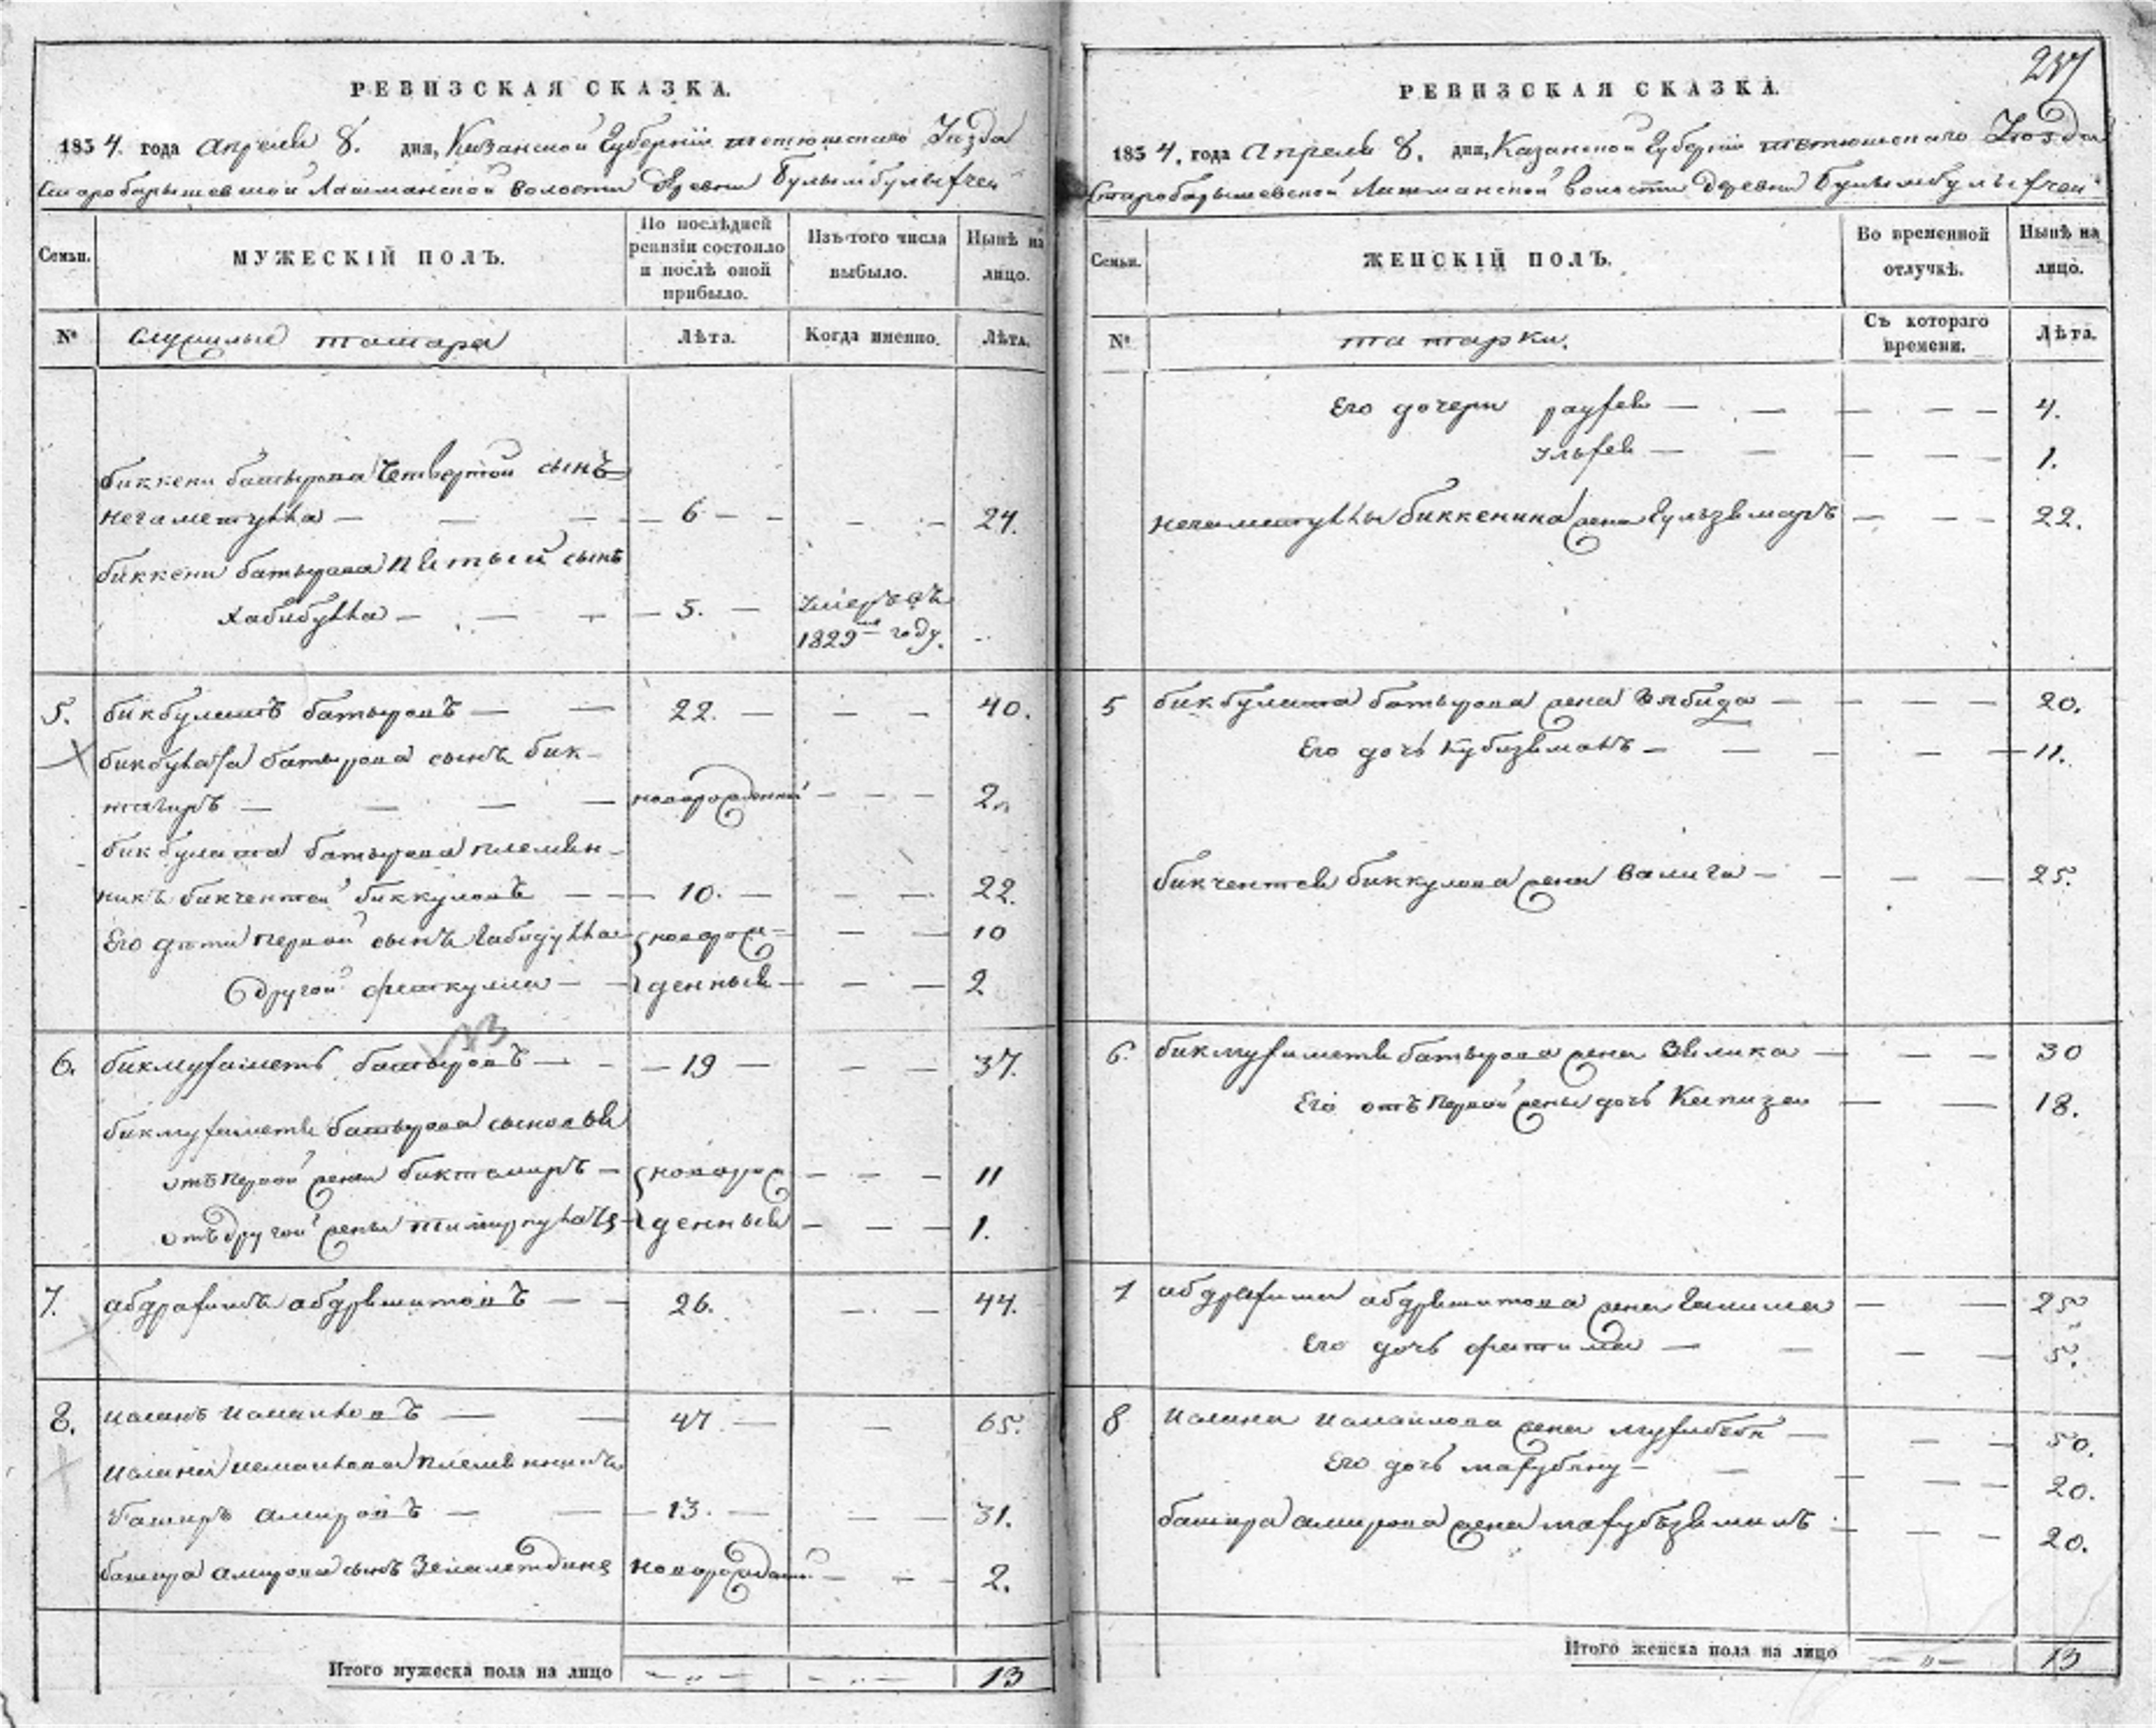 РЕВИЗСКАЯ СКАЗКА.
1834. года Апреля 8. дня, Казанской Губернии тетюшскаго Уезда
Старобарышевской Лашманской волости Деревни
Семьи.
МУЖЕСКІЙ ПОЛЪ.
По послѣдней ревизіи состояло и послѣ оной прибыло.
Изъ того числа выбыло.
Нынѣ на лицо.
№
служилые татара
Лѣта.
Когда именно.
Лѣта.
биккени батырова Четвертой сынъ
негаметулла — 6 — 24.
биккени батырова пятый сынъ
Хабибулла — 5. — умеръ въ 1829мъ году.
5. бикбулатъ батыровъ — 22. — 40.
батырова сынъ бик-
тагиръ — новорожденный — 2.
бикбулата батырова племян-
никъ бикчентей биккуловъ — 10. — 22.
Его дети первой сынъ Габидулла новорож- — 10
другой фаткулла — денные — 2
6. бикмухаметъ батыровъ — 19 — 37.
бикмухаметя батырова сыновья
отъ первой жены биктамиръ — новорож — 11
отъ другой жены — денные — 1.
7. абдрахимъ абдряшитовъ — 26. — 44.
8. — 47. — 65.
племянникъ
баширъ амировъ — 13. — 31.
башира амирова сынъ Зелялетдинъ новорожденный — 2.
Итого мужеска пола на лицо — „ — 13
237
РЕВИЗСКАЯ СКАЗКА.
1834. года Апреля 8. дня, Казанской Губернии тетюшскаго Уезда
Старобарышевской Лашманской волости Деревни
Семьи.
ЖЕНСКІЙ ПОЛЪ.
Во временной отлучкѣ.
Нынѣ на лицо.
№
татарки.
Съ котораго времени.
Лѣта.
Его дочери — 4.
— 1.
негаметуллы биккенина жена Гульзямалъ — 22.
5 бикбулата батырова жена Зябида — 20.
Его дочь — 11.
бикчентея биккулова жена Валига — 25.
6. бикмухаметя батырова жена Зялика — 30
Его отъ первой жены дочь — 18.
7 абдрахима абдряшитова жена Галима — 25
Его дочь фатима — 5.
8 жена — 50.
Его дочь — 20.
башира амирова жена — 20.
Итого женска пола на лицо — „ — 13